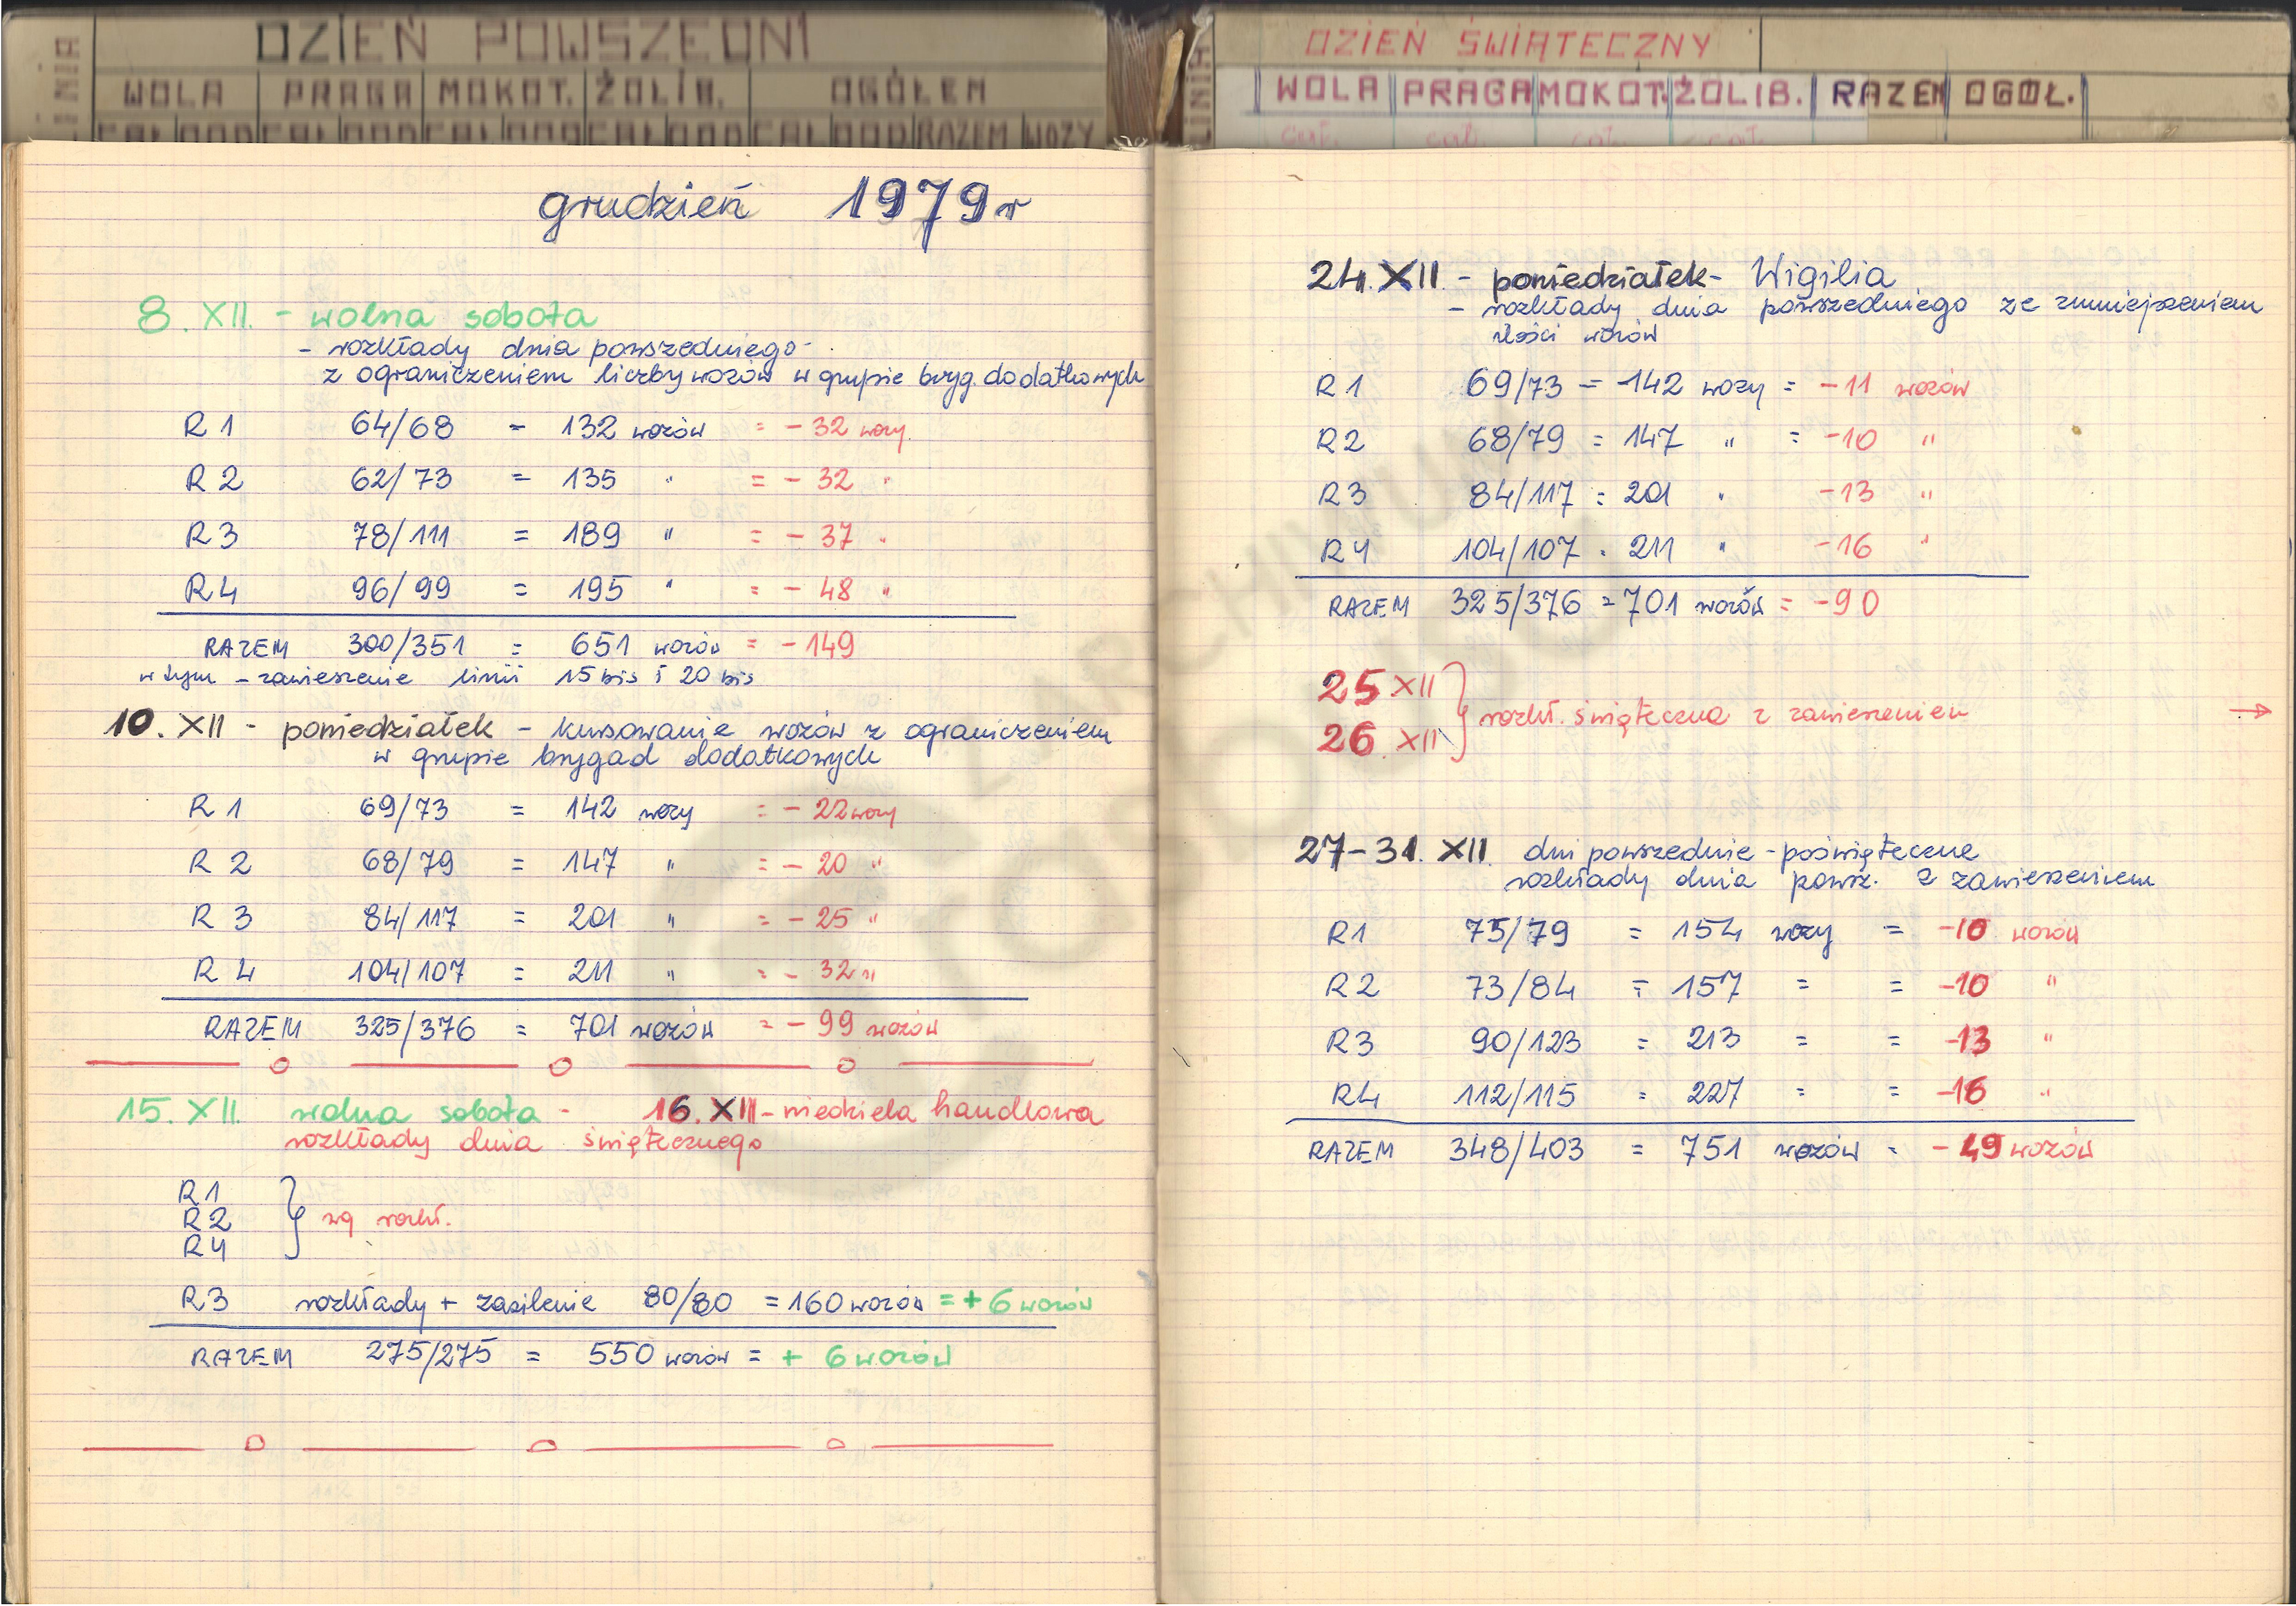 LINIA
DZIEŃ POWSZEDNI
WOLA PRAGA MOKOT. ŻOLIB. OGÓŁEM
CAŁ DOD CAŁ DOD CAŁ DOD CAŁ DOD CAŁ DOD RAZEM WOZY
grudzień 1979 r
8. XII. - wolna sobota
- rozkłady dnia powszedniego -
z ograniczeniem liczby wozów w grupie bryg. dodatkowych
R1 64/68 = 132 wozów = - 32 wozy.
R2 62/73 = 135 " = - 32 "
R3 78/111 = 189 " = - 37 "
R4 96/99 = 195 " = - 48 "
RAZEM 300/351 = 651 wozów = - 149
w tym - zawieszenie linii 15 bis i 20 bis
10. XII - poniedziałek - kursowanie wozów z ograniczeniem
w grupie brygad dodatkowych
R1 69/73 = 142 wozy = - 22 wozy
R2 68/79 = 147 " = - 20 "
R3 84/117 = 201 " = - 25 "
R4 104/107 = 211 " = - 32 "
RAZEM 325/376 = 701 wozów = - 99 wozów
15. XII. wolna sobota - 16. XII - niedziela handlowa
rozkłady dnia świątecznego
R1
R2 } wg rozkł.
R4
R3 rozkłady + zasilenie 80/80 = 160 wozów = + 6 wozów
RAZEM 275/275 = 550 wozów = + 6 wozów
LINIA
DZIEŃ ŚWIĄTECZNY
WOLA PRAGA MOKOT. ŻOLIB. RAZEM OGÓŁ.
cał. cał. cał. cał.
24. XII - poniedziałek - Wigilia
- rozkłady dnia powszedniego ze zmniejszeniem
ilości wozów
R1 69/73 = 142 wozy = - 11 wozów
R2 68/79 = 147 " = - 10 "
R3 84/117 = 201 " - 13 "
R4 104/107 = 211 " - 16 "
RAZEM 325/376 = 701 wozów = - 90
25 XII
26. XII } rozkł. świąteczna z zawieszeniem →
27-31. XII. dni powszednie - poświąteczne
rozkłady dnia powsz. z zawieszeniem
R1 75/79 = 154 wozy = - 10 wozów
R2 73/84 = 157 = = - 10 "
R3 90/123 = 213 = = - 13 "
R4 112/115 = 227 = = - 16 "
RAZEM 348/403 = 751 wozów = - 49 wozów